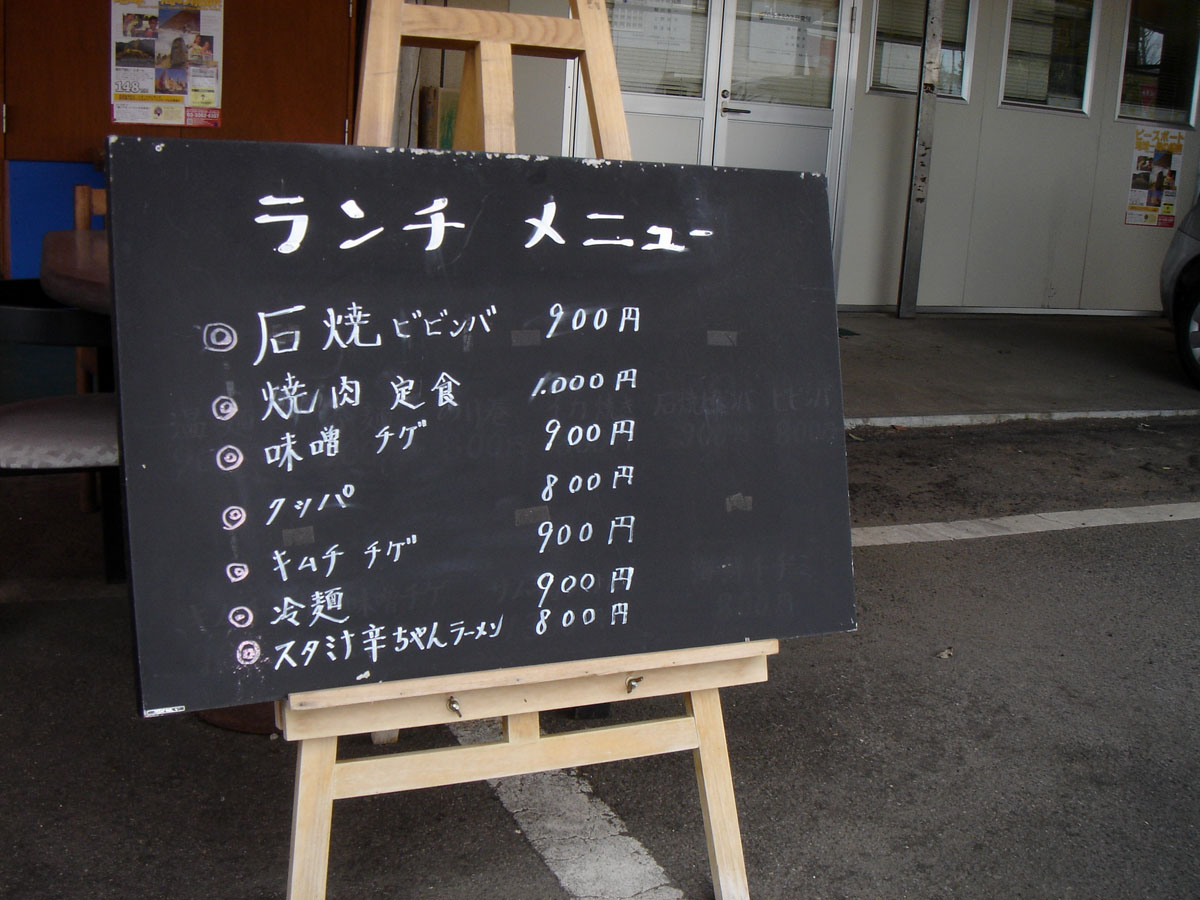 ランチ メニュー
◎ 石焼ビビンバ 900円
◎ 焼肉 定食 1.000円
◎ 味噌 チゲ 900円
◎ クッパ 800円
◎ キムチ チゲ 900円
◎ 冷麺 900円
◎ スタミナ辛ちゃんラーメン 800円
ピースボート
148